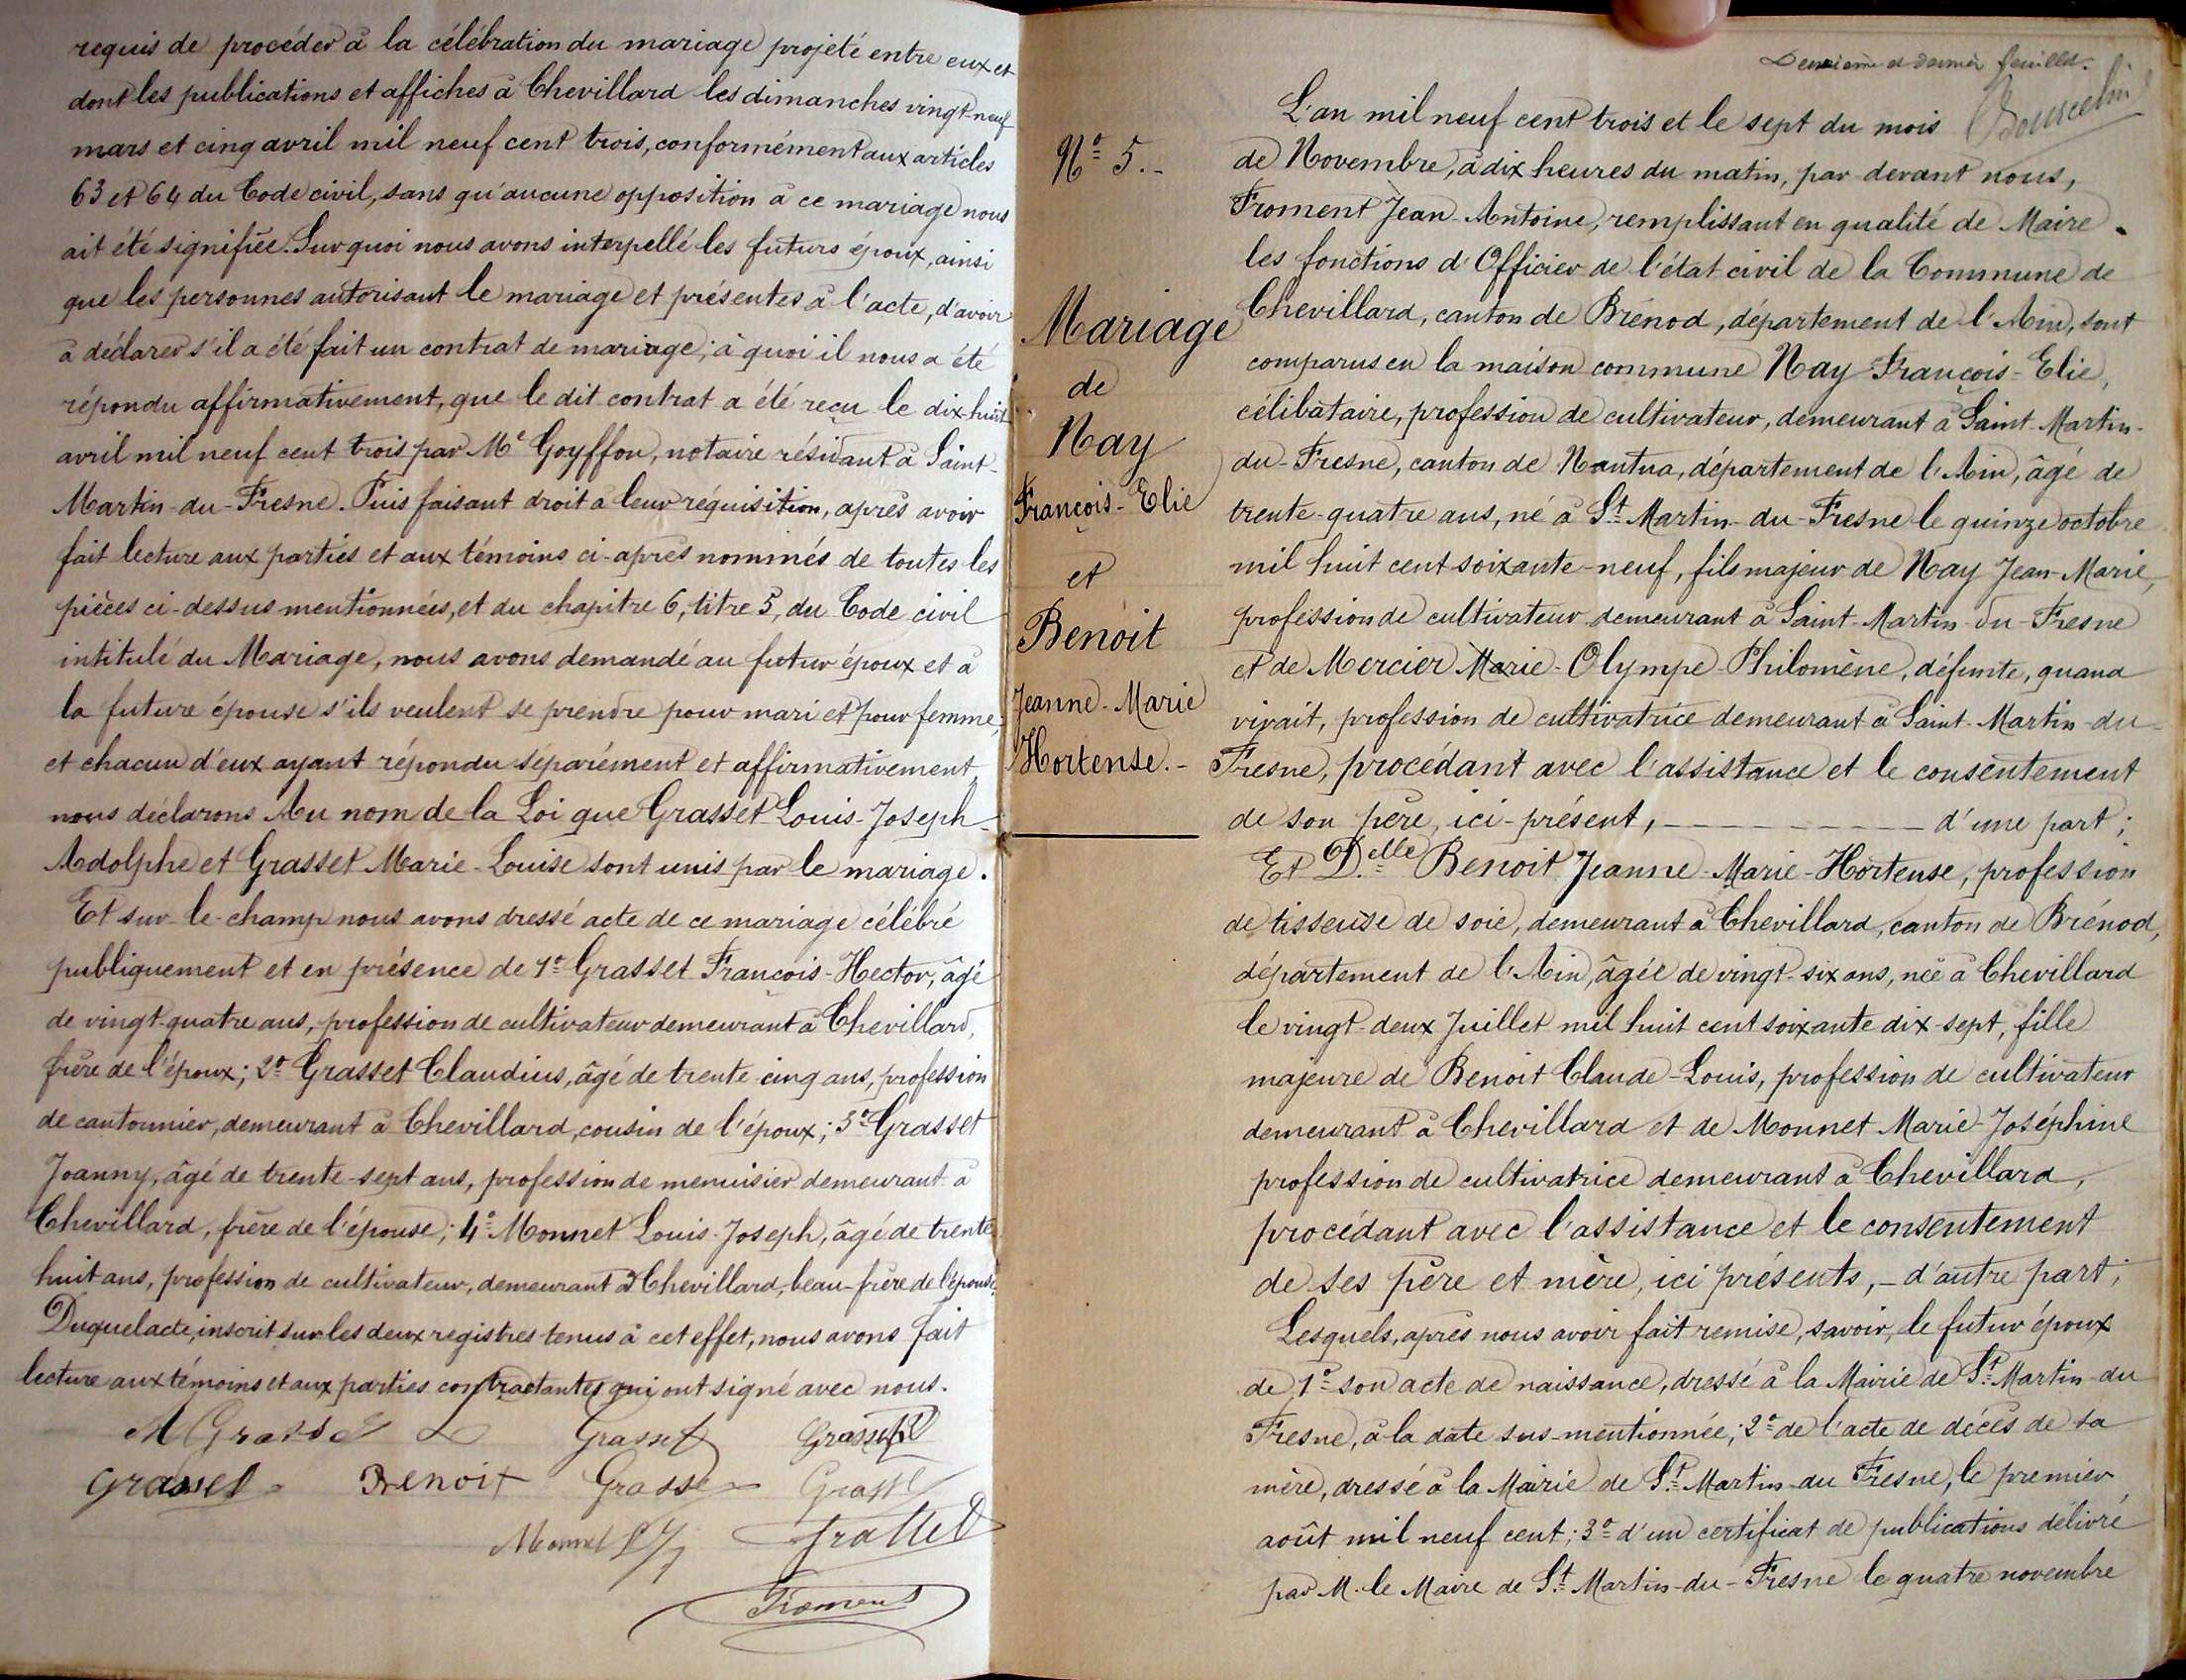 requis de procéder à la célébration du mariage projeté entre eux et
dont les publications et affiches à Chevillard les dimanches vingt-neuf
mars et cinq avril mil neuf cent trois, conformément aux articles
63 et 64 du Code civil, sans qu'aucune opposition à ce mariage nous
ait été signifiée. Sur quoi nous avons interpellé les futurs époux, ainsi
que les personnes autorisant le mariage et présentes à l'acte, d'avoir
à déclarer s'il a été fait un contrat de mariage; à quoi il nous a été
répondu affirmativement, que le dit contrat a été reçu le dix huit
avril mil neuf cent trois par Me Goyffon, notaire résidant à Saint-
Martin-du-Fresne. Puis faisant droit à leur réquisition, après avoir
fait lecture aux parties et aux témoins ci-après nommés de toutes les
pièces ci-dessus mentionnées, et du chapitre 6, titre 5, du Code civil
intitulé du Mariage, nous avons demandé au futur époux et à
la future épouse s'ils veulent se prendre pour mari et pour femme,
et chacun d'eux ayant répondu séparément et affirmativement,
nous déclarons Au nom de la Loi que Grasset Louis-Joseph-
Adolphe et Grasset Marie-Louise sont unis par le mariage.
Et sur-le-champ nous avons dressé acte de ce mariage célébré
publiquement et en présence de 1º Grasset François-Hector, âgé
de vingt-quatre ans, profession de cultivateur demeurant à Chevillard,
frère de l'époux; 2º Grasset Claudius, âgé de trente cinq ans, profession
de cantonnier, demeurant à Chevillard, cousin de l'époux; 3º Grasset
Joanny, âgé de trente-sept ans, profession de menuisier demeurant à
Chevillard, frère de l'épouse; 4º Monnet Louis-Joseph, âgé de trente
huit ans, profession de cultivateur, demeurant à Chevillard, beau-frère de l'épouse.
Duquel acte, inscrit sur les deux registres tenus à cet effet, nous avons fait
lecture aux témoins et aux parties contractantes qui ont signé avec nous.
M Grasset L Grasset Grasset
Grasset Benoit Grasset Grasset
Monnet L J Grasset
Froment
Deuxième et dernier feuillet.
Nº 5.-
Mariage
de
Nay
François-Elie
et
Benoit
Jeanne-Marie
Hortense.-
L'an mil neuf cent trois et le sept du mois
de Novembre, à dix heures du matin, par devant nous,
Froment Jean Antoine, remplissant en qualité de Maire
les fonctions d'Officier de l'état civil de la Commune de
Chevillard, canton de Brénod, département de l'Ain, sont
comparus en la maison commune Nay François-Elie,
célibataire, profession de cultivateur, demeurant à Saint-Martin-
du-Fresne, canton de Nantua, département de l'Ain, âgé de
trente-quatre ans, né à St Martin-du-Fresne le quinze octobre
mil huit cent soixante-neuf, fils majeur de Nay Jean-Marie,
profession de cultivateur demeurant à Saint-Martin-du-Fresne
et de Mercier Marie-Olympe-Philomène, défunte, quand
vivait, profession de cultivatrice demeurant à Saint-Martin-du-
Fresne, procédant avec l'assistance et le consentement
de son père, ici-présent, - - - - - - - d'une part;
Et Delle Benoit Jeanne-Marie-Hortense, profession
de tisseuse de soie, demeurant à Chevillard, canton de Brénod,
département de l'Ain, âgée de vingt-six ans, née à Chevillard
le vingt-deux Juillet mil huit cent soixante dix-sept, fille
majeure de Benoit Claude-Louis, profession de cultivateur
demeurant à Chevillard et de Monnet Marie-Joséphine
profession de cultivatrice demeurant à Chevillard,
procédant avec l'assistance et le consentement
de ses père et mère, ici présents, - d'autre part;
Lesquels, après nous avoir fait remise, savoir, le futur époux
de 1º son acte de naissance, dressé à la Mairie de St Martin-du
Fresne, à la date sus-mentionnée; 2º de l'acte de décès de sa
mère, dressé à la Mairie de St Martin-du Fresne, le premier
août mil neuf cent; 3º d'un certificat de publications délivré
par M. le Maire de St Martin-du-Fresne le quatre novembre